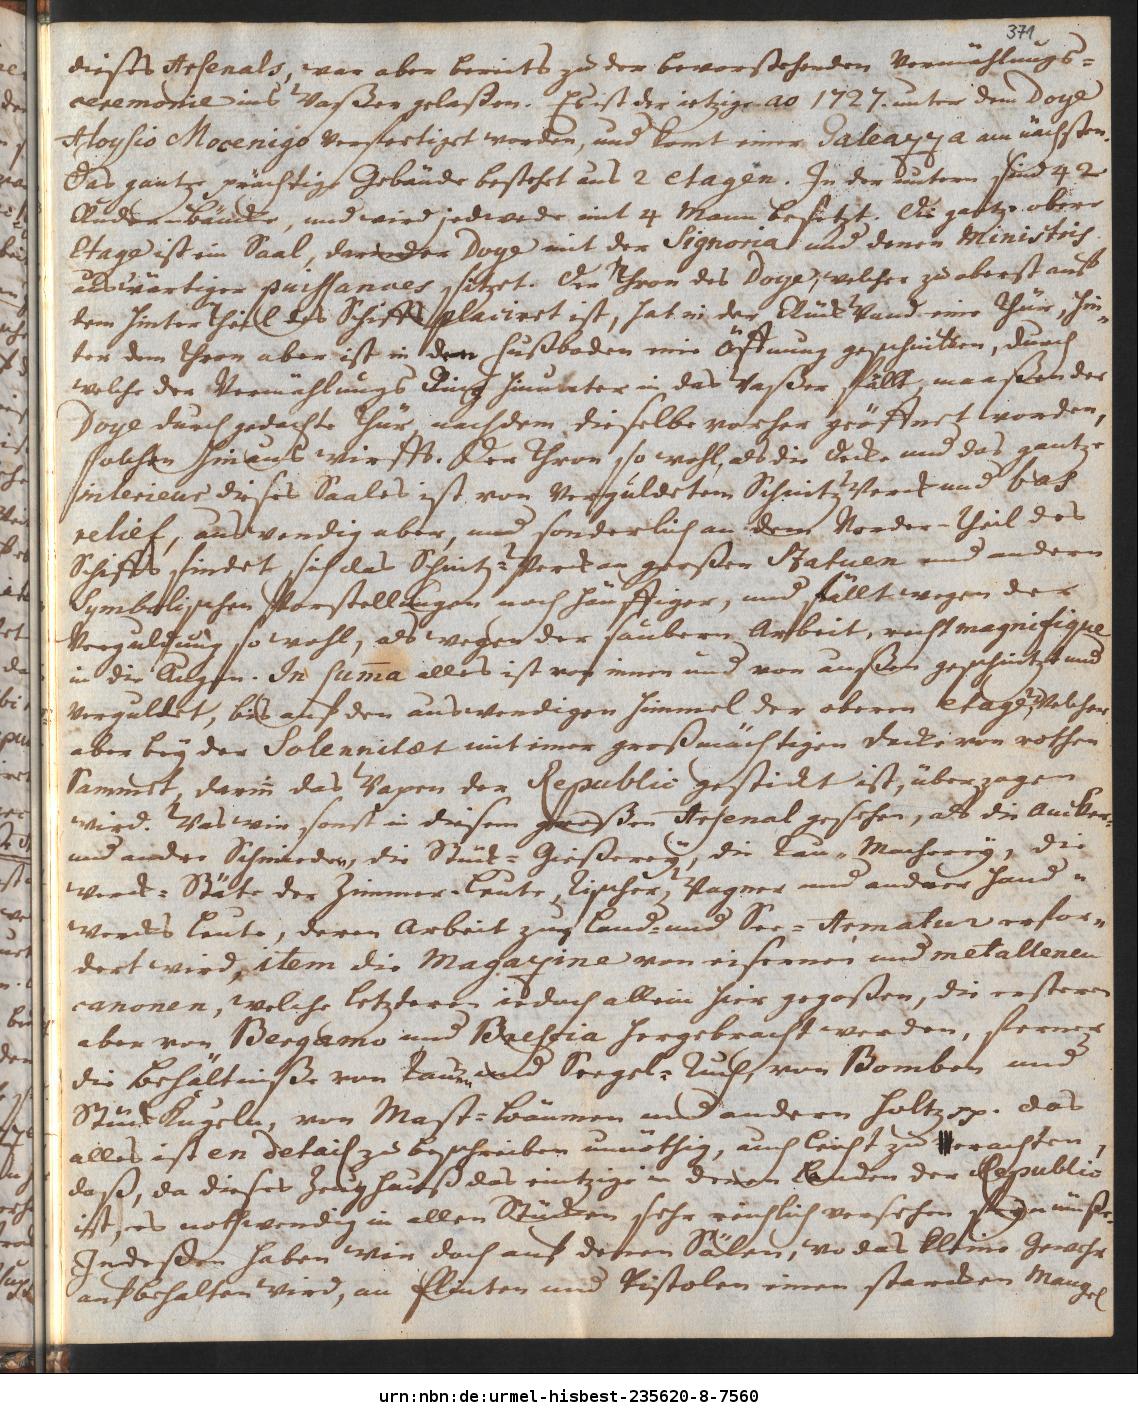 371
dieses Arsenals, war aber bereits zu der bevorstehenden Vermählungs=
ceremonie ins Waßer gelaßen. Es ist der ietzige ao 1727. unter dem Doge
Aloysio Mocenigo verfertiget worden, und komt einer Galeazza am nächsten.
Das gantze prächtige Gebäude bestehet aus 2 etagen. In der untern sind 42
Ruder=Bäncke, und wird jedwede mit 4 Mann besetzt. Die gantze obere
Etage ist ein Saal, darin der Doge mit der Signoria und denen Ministris
auswärtiger puissances sitzet. Der Thron des Doge, welcher zu oberst auf
dem hinter Theil des Schiffs placiret ist, hat in der Rück Wand eine Thür, hin=
ter dem Thron aber ist in dem Fußboden eine Öffnung geschnitten, durch
welche der Vermählungs Ring hinunter in das Waßer fällt, maaßen der
Doge durch gedachte Thür, nachdem dieselbe vorher geöffnet worden,
solchen hinaus wirfft. Der Thron so wohl, als die Decke und das gantze
interieur dieses Saales ist von verguldetem Schnitz Werck und bas
relief, auswendig aber, und sonderlich an dem Vorder=Theil des
Schiffs findet sich das Schnitz=Werck an großen Statuen und andern
Symbolischen Vorstellungen noch häuffiger, und fällt wegen der
Verguldung so wohl, als wegen der saubern Arbeit, recht magnifique
in die Augen. In summa alles ist von innen und von außen geschnitzt und
verguldet, bis auf den auswendigen Himmel der oberen etage, welcher
aber bey der Solennitæt mit einer großmächtigen Decke von rothen
Sammet, darin das Wapen der Republic gestickt ist, überzogen
wird. Was wir sonst in diesem großen Arsenal gesehen, als die Ancker=
und andre Schmieden, die Stück=Gießerey, die Tau=Macherey, die
werck=Stäte der Zimmer=Leute, Tischer, Wagner und andrer Hand=
wercks Leute, deren Arbeit zur Land= und See=Armatur erfor=
dert wird, item die Magazine von eisernen und metallenen
canonen, welche letzderen iedoch allein hier gegoßen, die ersteren
aber von Bergamo und Brescia hergebracht werden, ferner
die Behältniße von Tauen und Seegel=Tuch, von Bomben und
Stück Kugeln, von Mast=Bäumen und andern Holtz pp. das
alles ist en detail zu beschreiben unnöthig, auch leicht zu erachten,
daß, da dieses Zeughauß das eintzige in denen Landen der Republic
ist, es nothwendig in allen Stücken sehr reichlich versehen seyn müße.
Indeßen haben wir doch auf denen Sälen, wo das kleine Gewehr
aufbehalten wird, an Flinten und Pistolen einen starcken Mangel
urn:nbn:de:urmel-hisbest-235620-8-7560